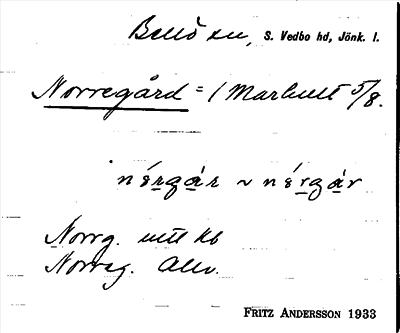 Bellö sn, S. Vedbo hd, Jönk. l.
Norregård = 1 Marhult 5/8.
nérgår ~ nérgår
Norrg. utt kb
Norreg. Allv.
FRITZ ANDERSSON 1933